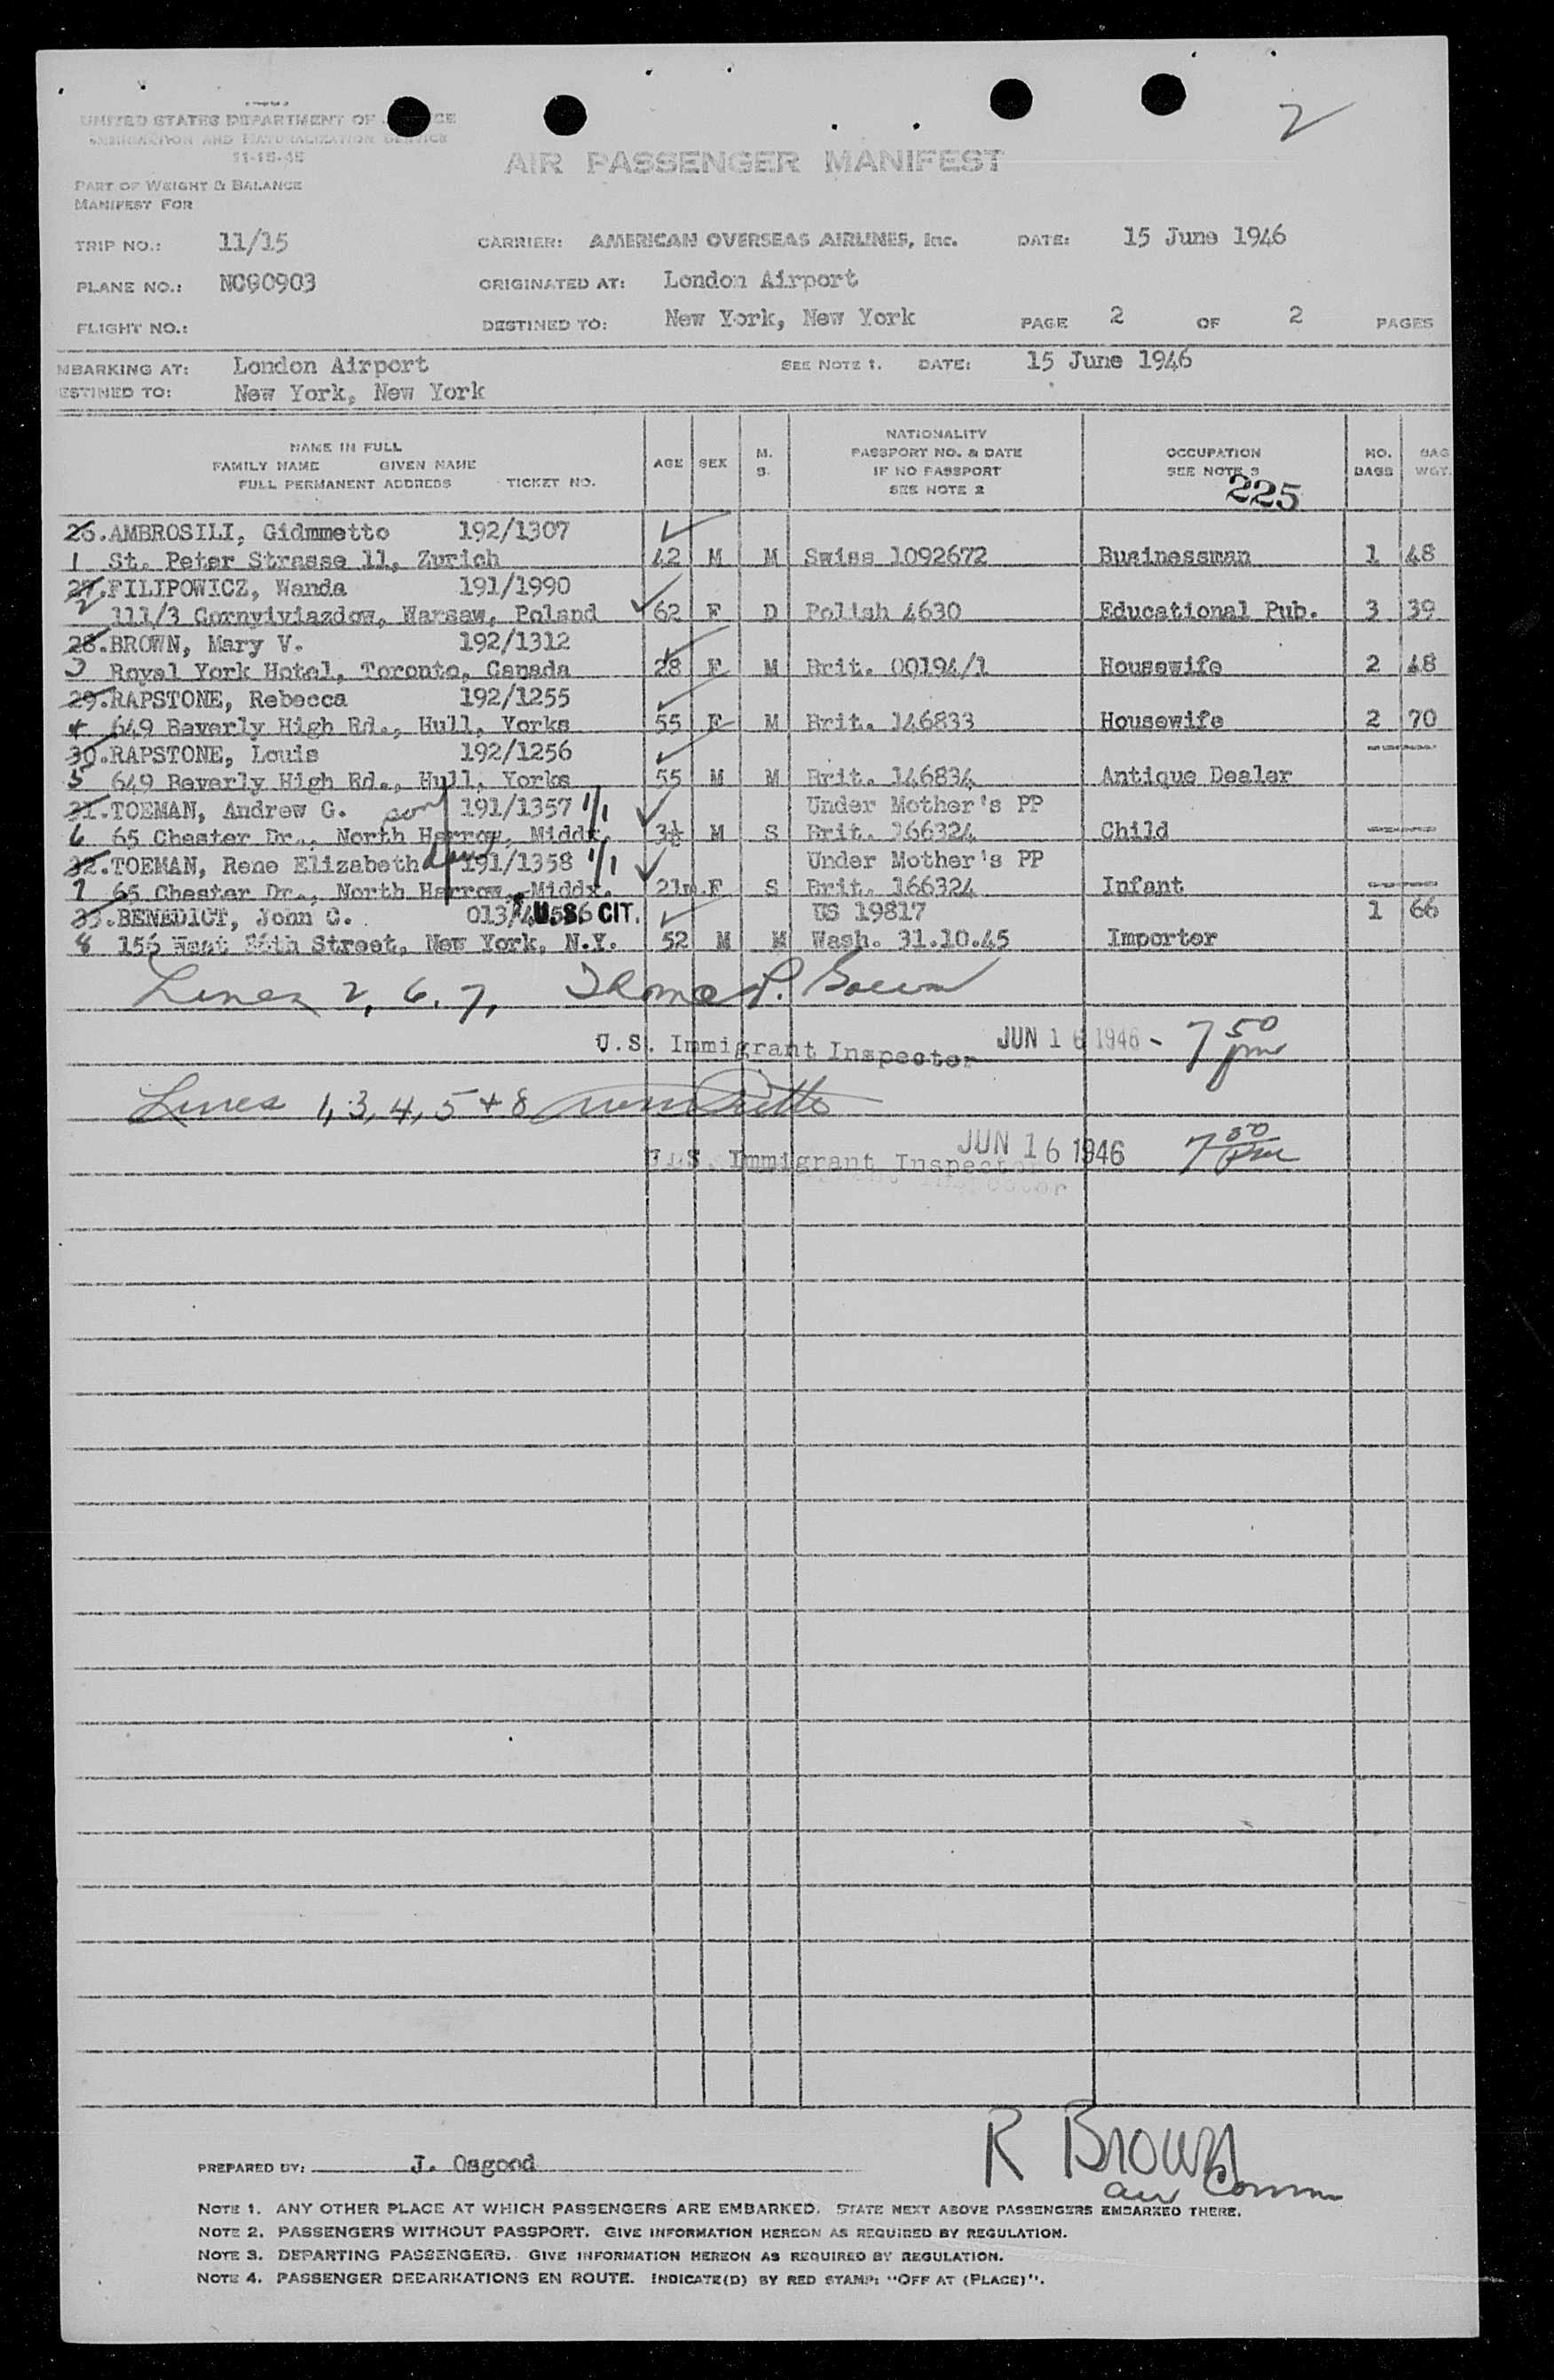 2
UNITED STATES DEPARTMENT OF
IMMIGRATION AND NATURALIZATION SERVICE
11-15-45
AIR PASSENGER MANIFEST
PART OF WEIGHT & BALANCE
MANIFEST FOR
TRIP NO.: 11/15 CARRIER: AMERICAN OVERSEAS AIRLINES, Inc. DATE: 15 June 1946
PLANE NO.: NC90903 ORIGINATED AT: London Airport
FLIGHT NO.: DESTINED TO: New York, New York PAGE 2 OF 2 PAGES
MBARKING AT: London Airport SEE NOTE 1. DATE: 15 June 1946
ESTINED TO: New York, New York
NAME IN FULL
FAMILY NAME GIVEN NAME
FULL PERMANENT ADDRESS TICKET NO.
AGE SEX M. S.
NATIONALITY
PASSPORT NO. & DATE
IF NO PASSPORT
SEE NOTE 2
OCCUPATION
SEE NOTE 3
NO. BAGS
BAG WGT.
225
26. AMBROSILI, Gidmmetto 192/1307
1 St. Peter Strasse 11, Zurich 42 M M Swiss 1092672 Businessman 1 48
27. FILIPOWICZ, Wanda 191/1990
2 111/3 Gornyiviazdow, Warsaw, Poland 62 F D Polish 4630 Educational Pub. 3 39
28. BROWN, Mary V. 192/1312
3 Royal York Hotel, Toronto, Canada 28 F M Brit. 00194/1 Housewife 2 48
29. RAPSTONE, Rebecca 192/1255
4 649 Beverly High Rd., Hull, Yorks 55 F M Brit. 146833 Housewife 2 70
30. RAPSTONE, Louis 192/1256
5 649 Beverly High Rd., Hull, Yorks 55 M M Brit. 146834 Antique Dealer
31. TOEMAN, Andrew G. son 191/1357 1/1 Under Mother's PP
6 65 Chester Dr., North Harrow, Middx. 3½ M S Brit. 166324 Child
32. TOEMAN, Rene Elizabeth dau 191/1358 1/1 Under Mother's PP
7 65 Chester Dr., North Harrow, Middx. 21m. F S Brit. 166324 Infant
33. BENEDICT, John C. U.S. CIT. US 19817 1 66
8 156 West Street, New York, N.Y. 52 M M Wash. 31.10.45 Importer
Lines 2, 6, 7, Thomas P.
U.S. Immigrant Inspector JUN 16 1946 - 7 50 pm
Lines 1, 3, 4, 5 + 8
U.S. Immigrant Inspector JUN 16 1946 7 50 pm
R Brown
PREPARED BY: J. Osgood
air Comm
NOTE 1. ANY OTHER PLACE AT WHICH PASSENGERS ARE EMBARKED. STATE NEXT ABOVE PASSENGERS EMBARKED THERE.
NOTE 2. PASSENGERS WITHOUT PASSPORT. GIVE INFORMATION HEREON AS REQUIRED BY REGULATION.
NOTE 3. DEPARTING PASSENGERS. GIVE INFORMATION HEREON AS REQUIRED BY REGULATION.
NOTE 4. PASSENGER DEBARKATIONS EN ROUTE. INDICATE(D) BY RED STAMP: "OFF AT (PLACE)".